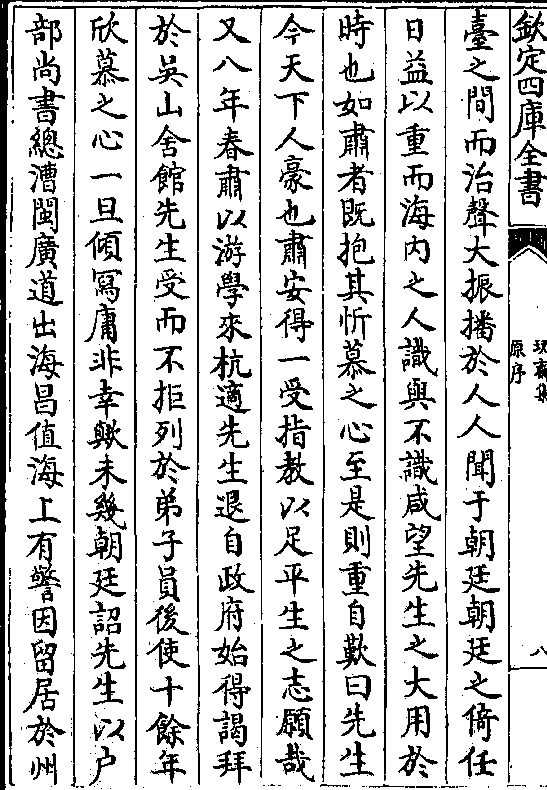 欽定四庫全書
玩齋集
原序
八
臺之間而治聲大振播於人人聞于朝廷朝廷之倚任
日益以重而海内之人識與不識咸望先生之大用於
時也如肅者既抱其忻慕之心至是則重自歎曰先生
今天下人豪也肅安得一受指教以足平生之志願哉
又八年春肅以游學來杭適先生退自政府始得謁拜
於吳山舍館先生受而不拒列於弟子員後使十餘年
欣慕之心一旦傾冩庸非幸歟未幾朝廷詔先生以户
部尚書總漕閩廣道出海昌值海上有警因留居於州